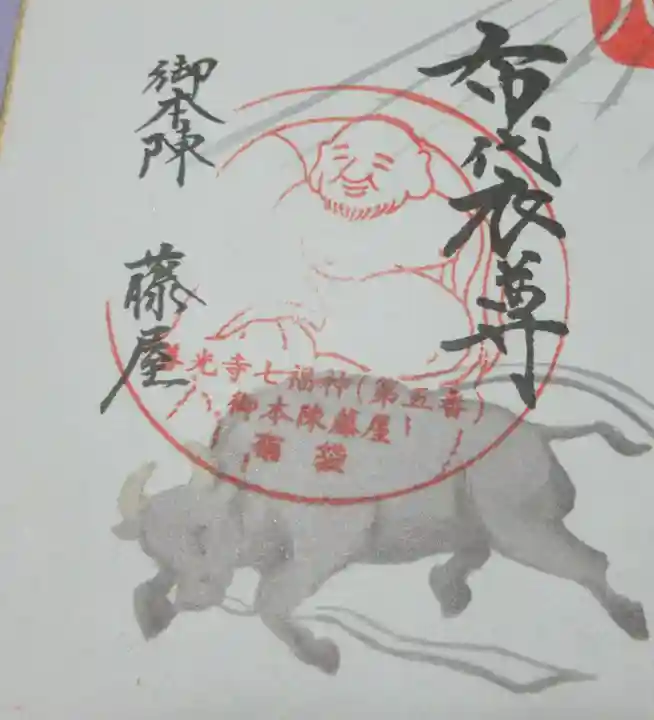 布袋尊
御本陣 藤屋
善光寺七福神(第五番)
御本陣藤屋
布袋